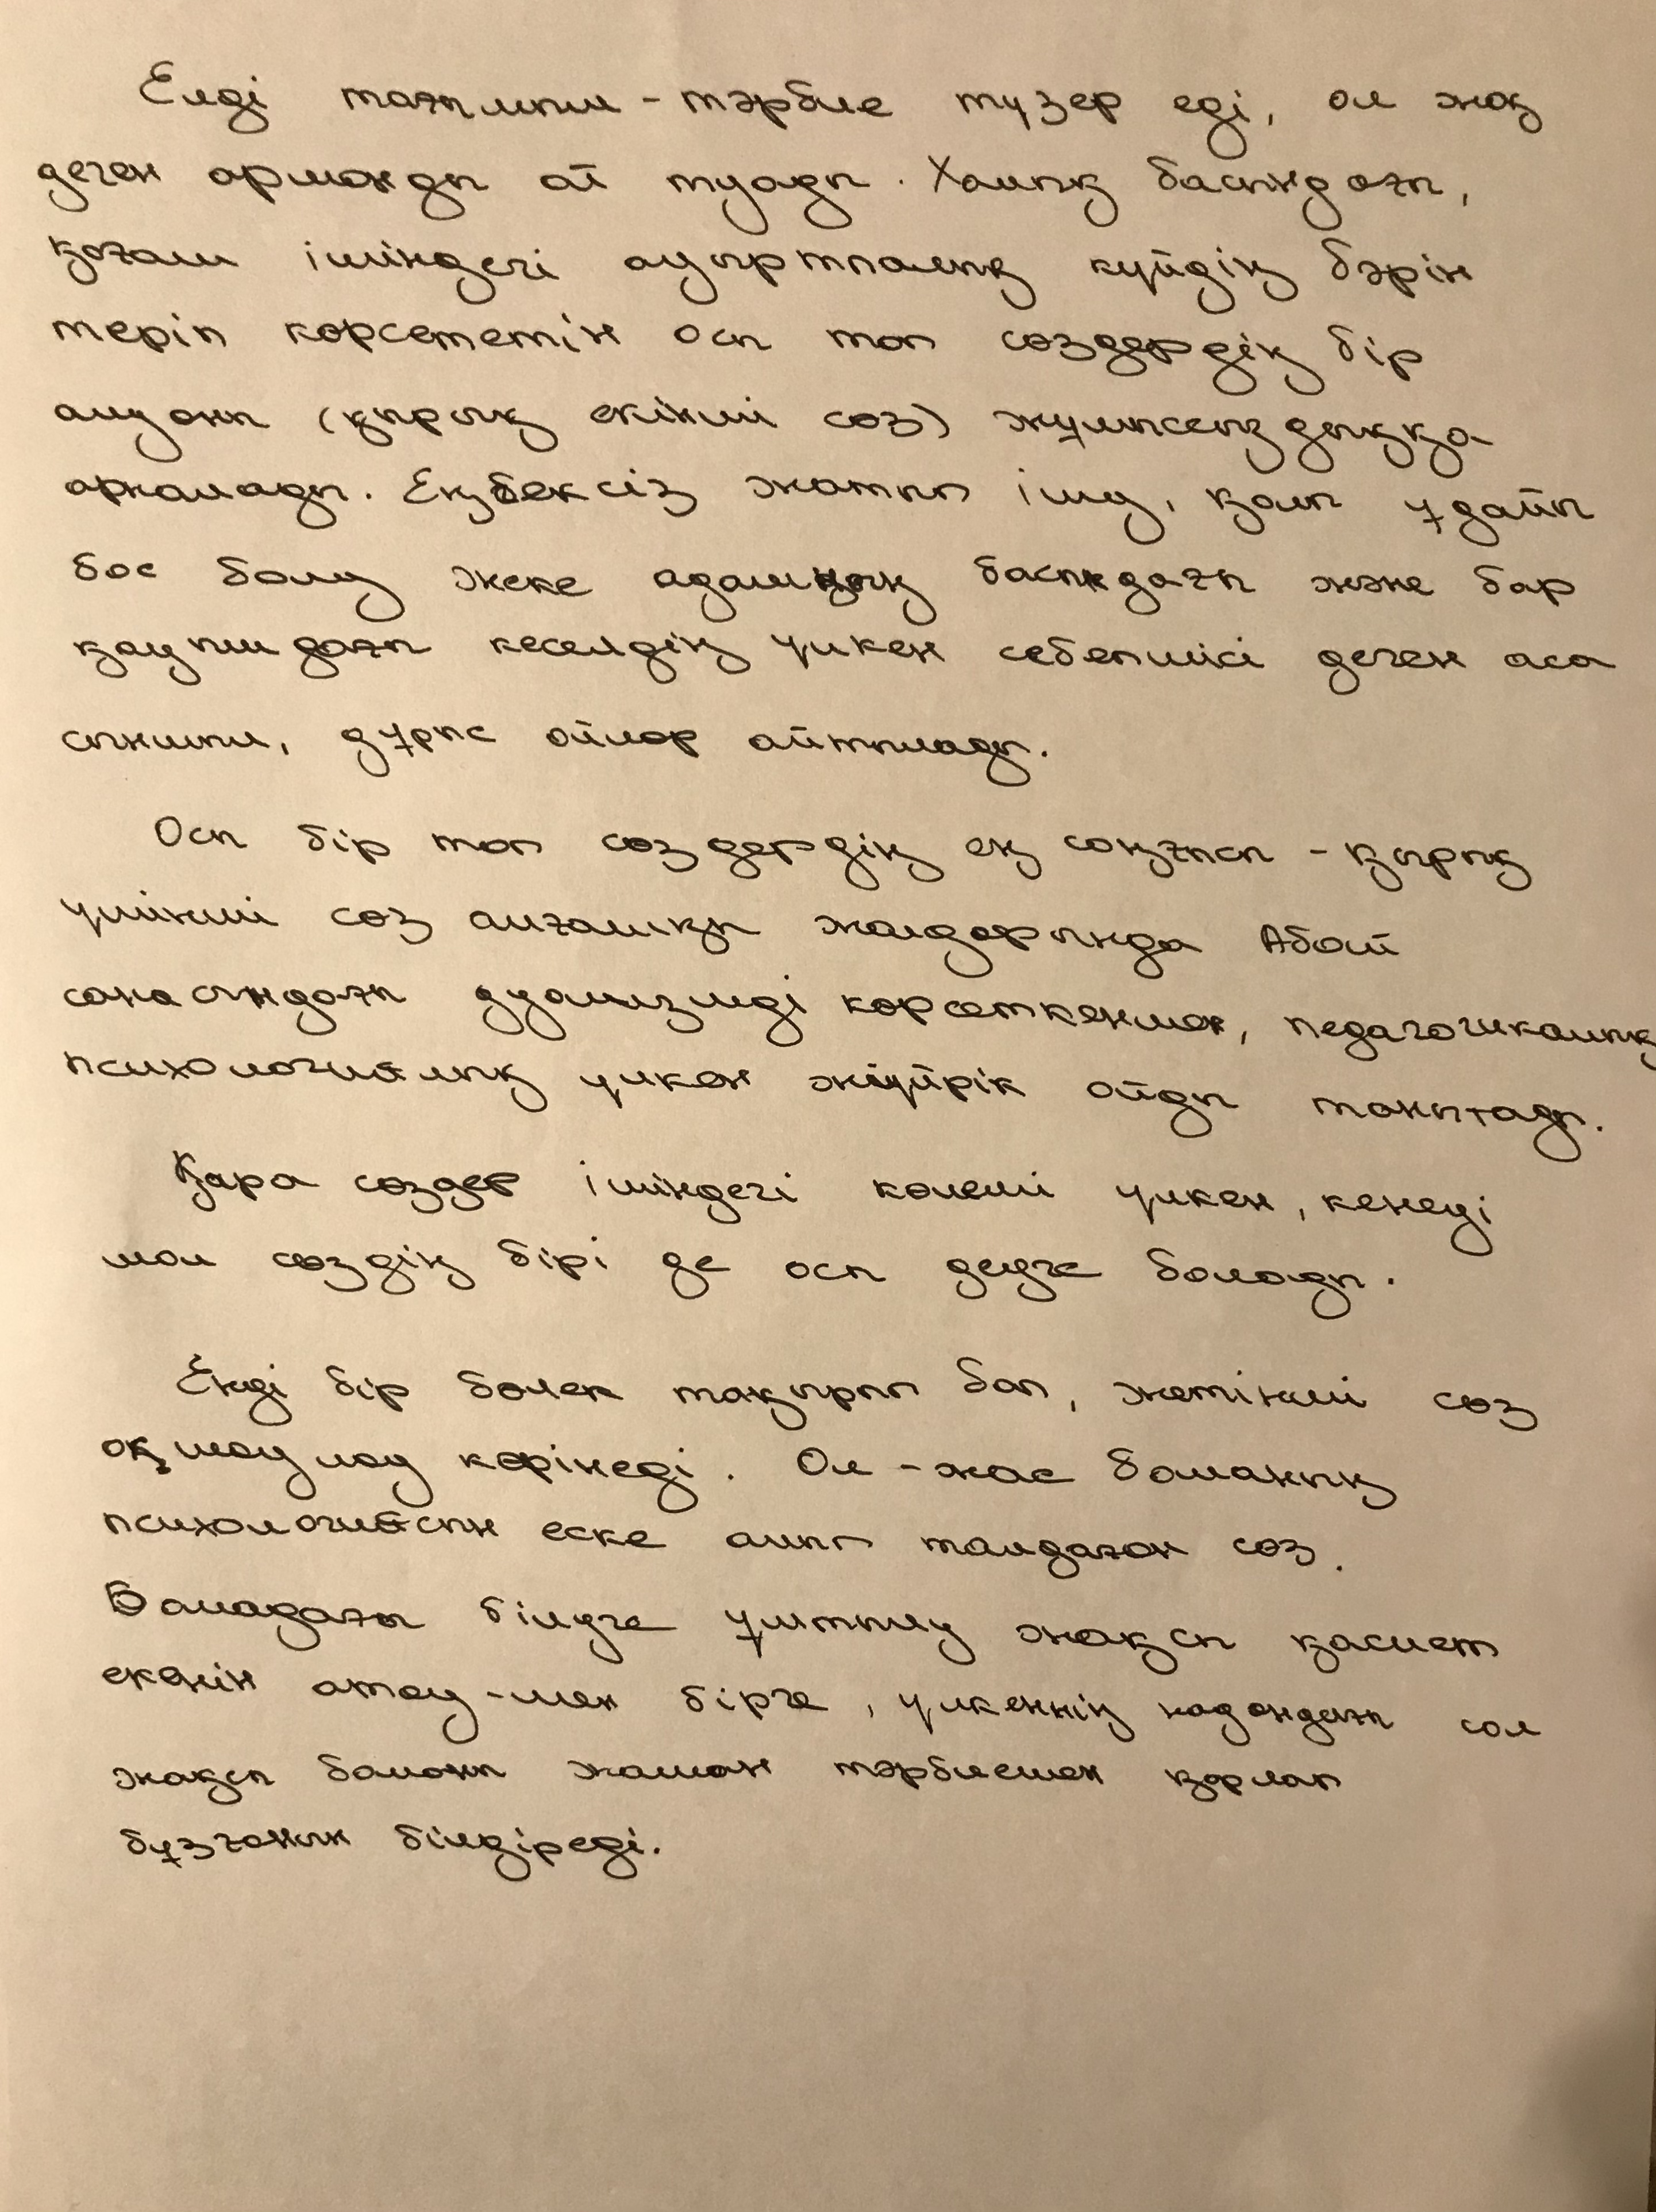 Елді тағылым-тәрбие түзер еді, ол жоқ
деген арманды ой туады. Халық басындағы,
қоғам ішіндегі ауыртпалық күйдің бәрін
теріп көрсететін осы топ сөздердің бір
алуаны (қырық екінші сөз) жұмыссыздыққа
арналады. Еңбексіз жатып ішу, қалы ұдайы
бос болу жеке адамның басындағы және бар
қауымдағы кеселдің үлкен себепшісі деген аса
сыншыл, дұрыс ойлар айтылады.
Осы бір топ сөздердің ең соңғысы - қырық
үшінші сөз алғашқы жолдарында Абай
санасындағы дуализмді көрсеткенмен, педагогикалық
психологиялық үлкен жүйрік ойды танытады.
Қара сөздер ішіндегі көлемі үлкен, кенеуі
мол сөздің бірі де осы деуге болады.
Енді бір бөлек тақырып боп, жетінші сөз
оқшаулау көрінеді. Ол - жас баланың
психологиясын еске алып талдаған сөз.
Баладағы білуге ұмтылу жақсы қасиет
екенін атау-мен бірге, үлкеннің надандығы сол
жақсы баланы жаман тәрбиемен қорлап
бұзғанын білдіреді.